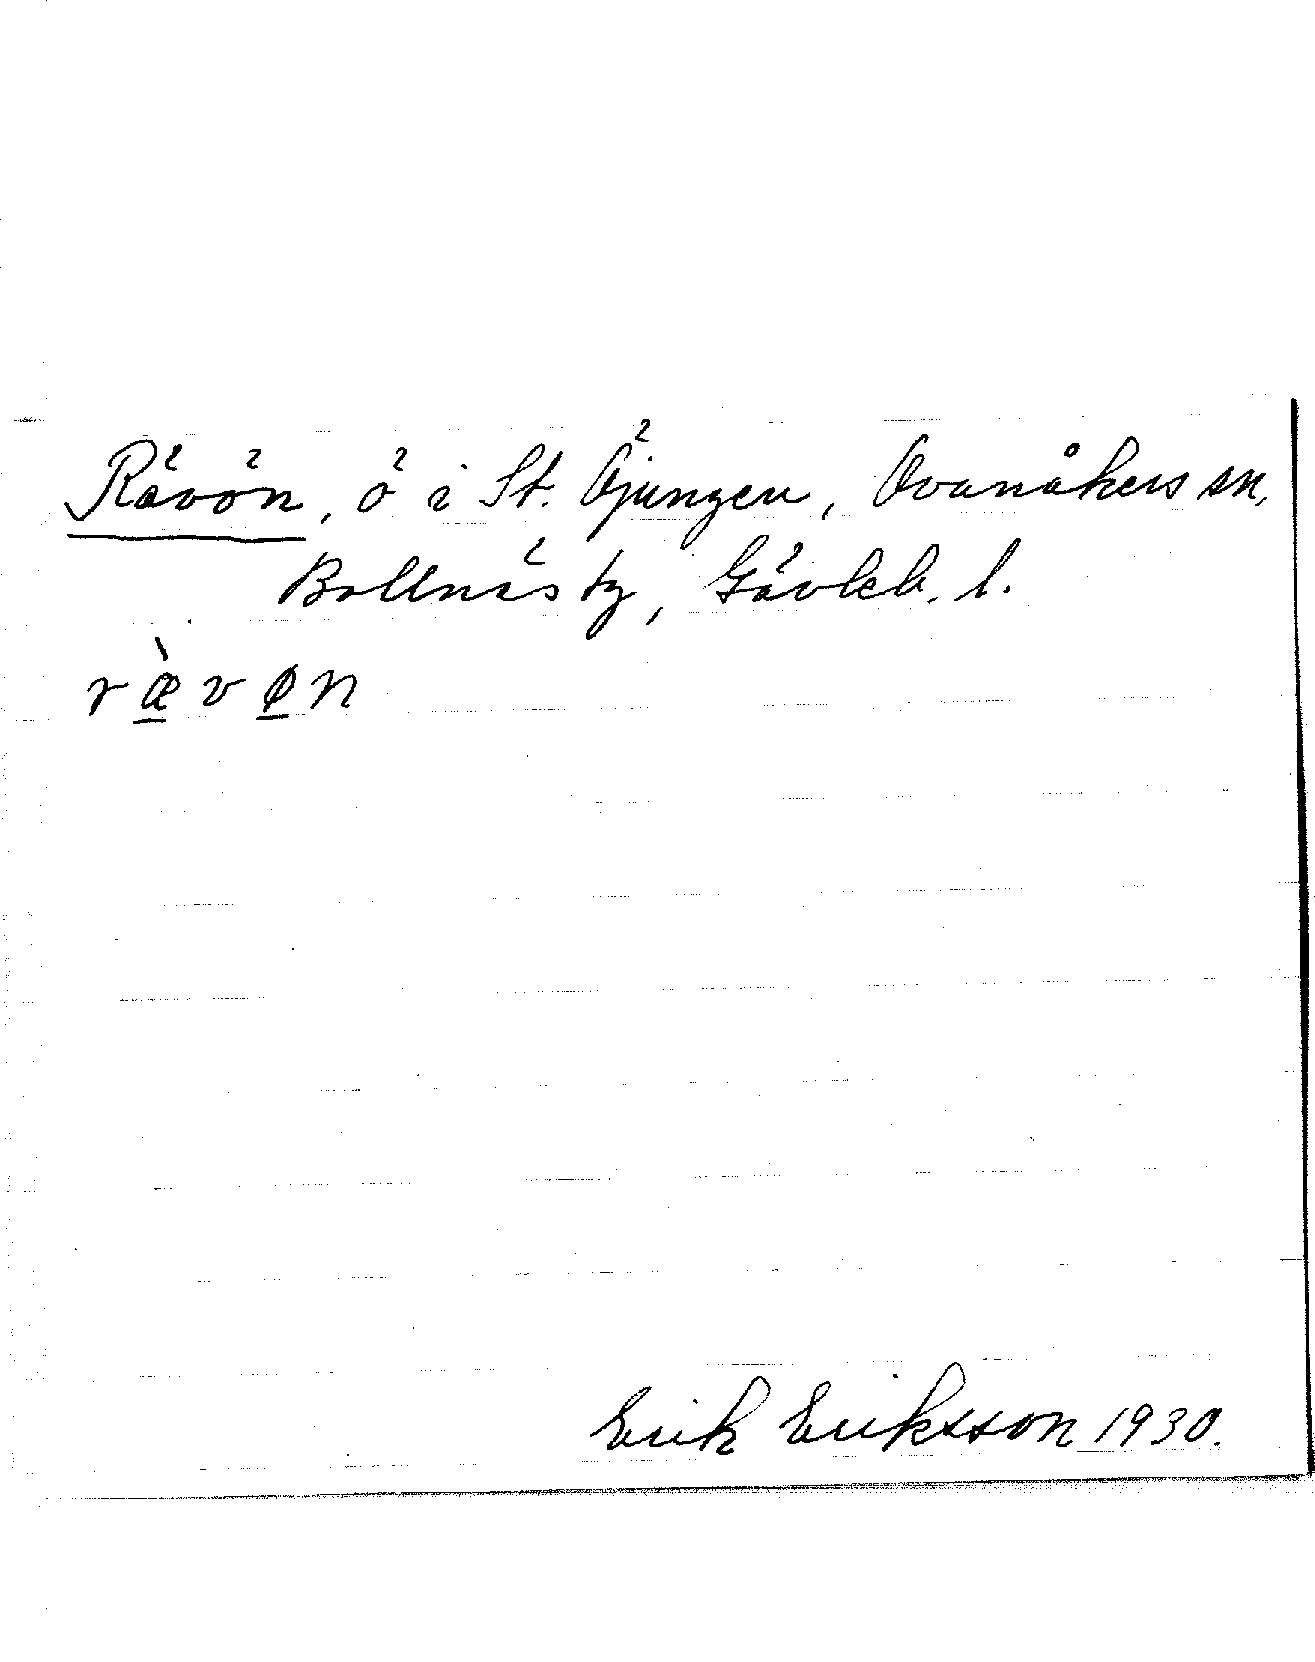 Rävön, ö i St. Öjungen, Ovanåkers sn,
Bollnäs tg, Gävleb. l.
r æ̀ v ø n
Erik Eriksson 1930.